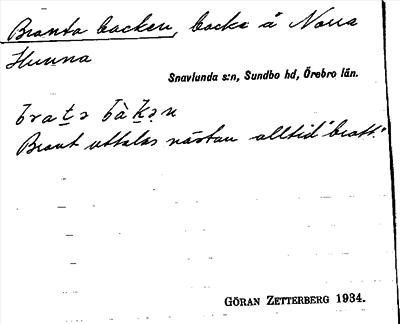 Branta backen, backe å Norra
Hunna
Snavlunda s:n, Sundbo hd, Örebro län.
bratə bàkən
Brant uttalas nästan alltid "bratt".
GÖRAN ZETTERBERG 1934.